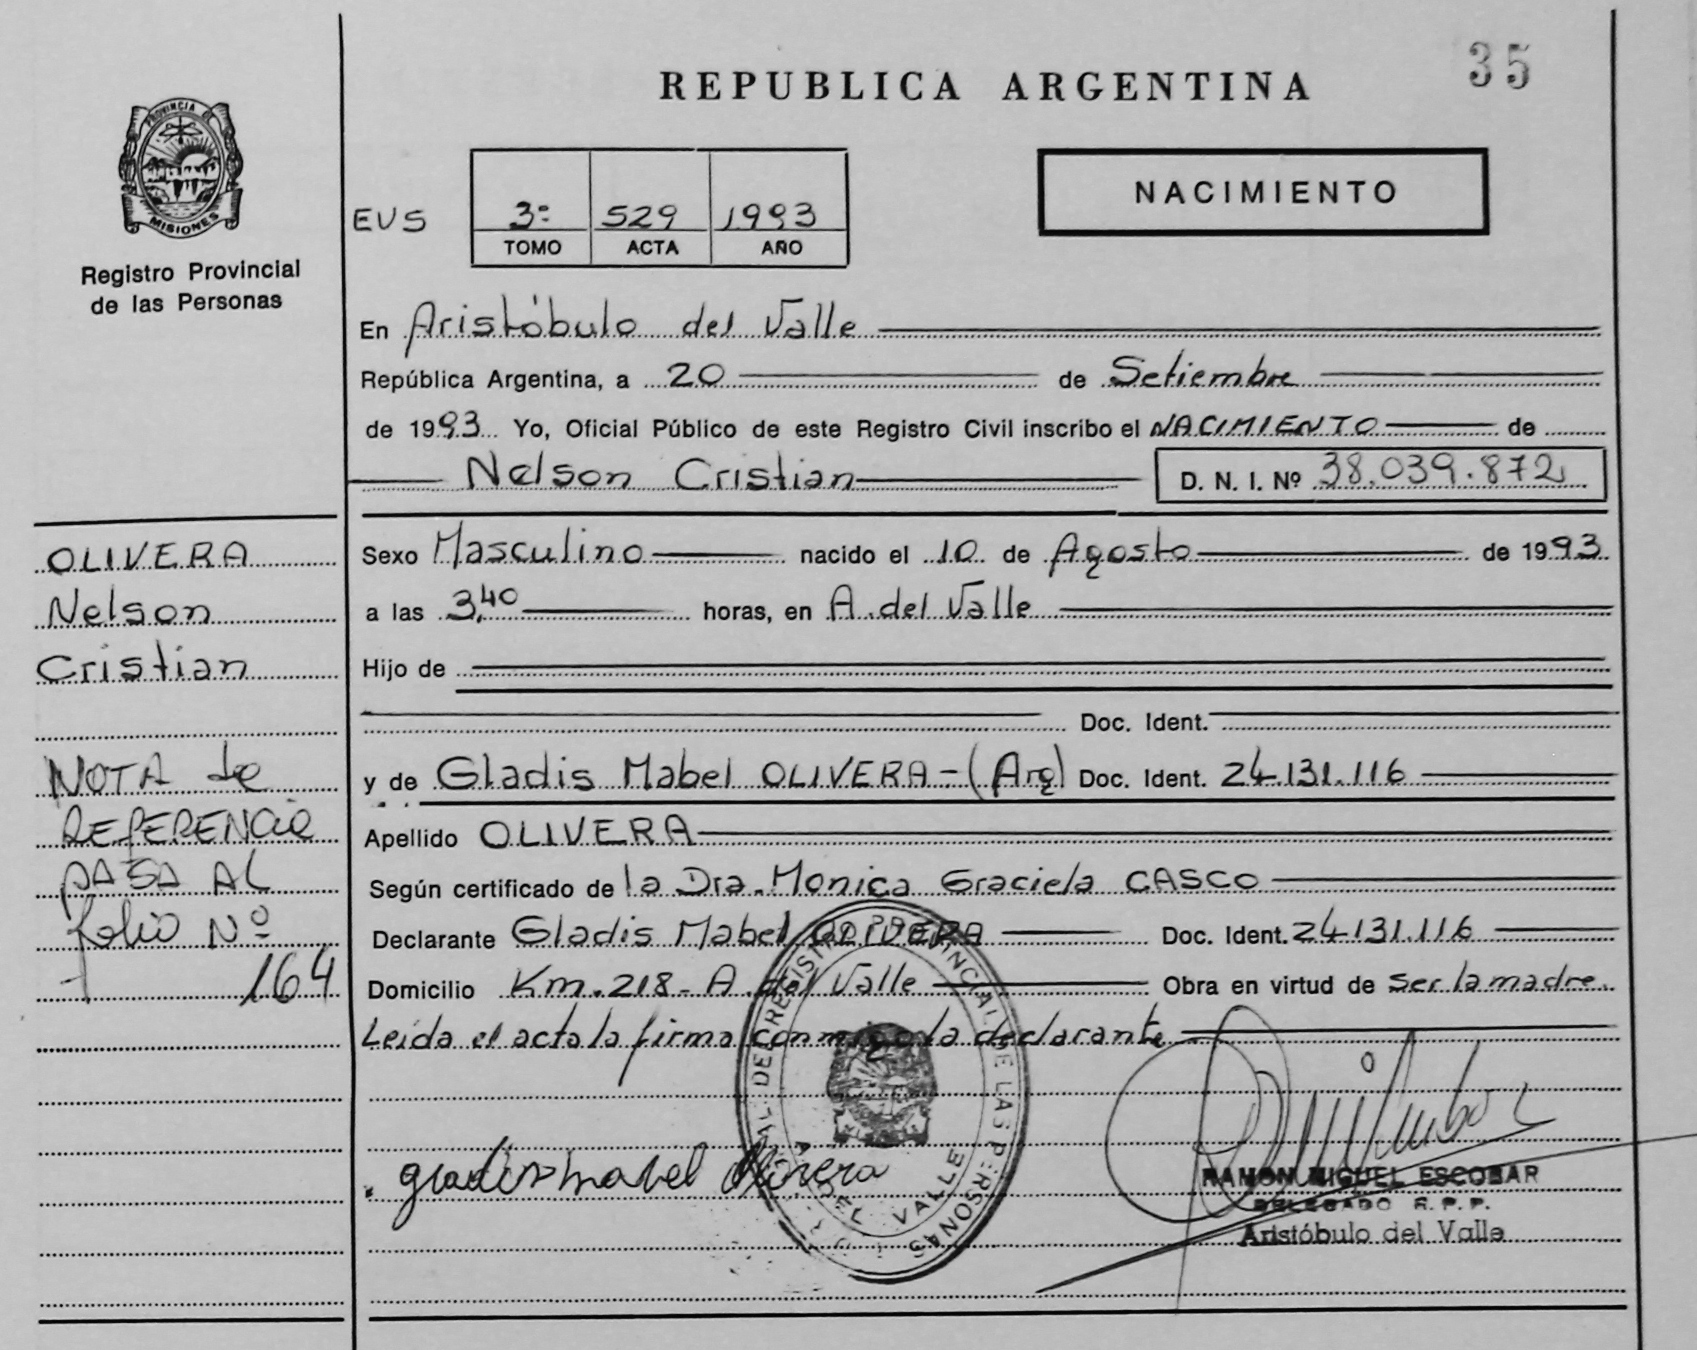 35
REPUBLICA ARGENTINA
PROVINCIA DE
MISIONES
Registro Provincial
de las Personas
EUS
3º 529 1993
TOMO ACTA AÑO
NACIMIENTO
En Aristóbulo del Valle
República Argentina, a 20 de Setiembre
de 1993 Yo, Oficial Público de este Registro Civil inscribo el NACIMIENTO de
Nelson Cristian D. N. I. Nº 38.039.872
OLIVERA
Nelson
Cristian
NOTA de
REFERENCIA
PASA AL
folio Nº
164
Sexo Masculino nacido el 10 de Agosto de 1993
a las 3,40 horas, en A. del Valle
Hijo de
Doc. Ident.
y de Gladis Mabel OLIVERA - (Arg) Doc. Ident. 24.131.116
Apellido OLIVERA
Según certificado de la Dra. Monica Graciela CASCO
Declarante Gladis Mabel OLIVERA Doc. Ident. 24.131.116
Domicilio Km. 218 - A. del Valle Obra en virtud de Ser la madre.
Leida el acta la firma conmigo la declarante
gladis mabel Olivera
PROVINCIAL DE LAS PERSONAS
DEL VALLE
RAMON MIGUEL ESCOBAR
DELEGADO R. P. P.
Aristóbulo del Valle